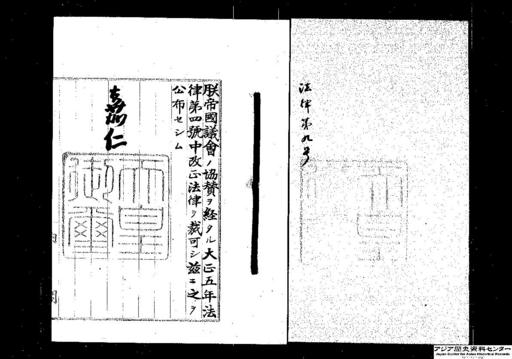 法律第九号
朕帝國議會ノ協贊ヲ経タル大正五年法
律第四號中改正法律ヲ裁可シ茲ニ之ヲ
公布セシム
嘉仁
天皇
御璽
アジア歴史資料センター
Japan Center for Asian Historical Records